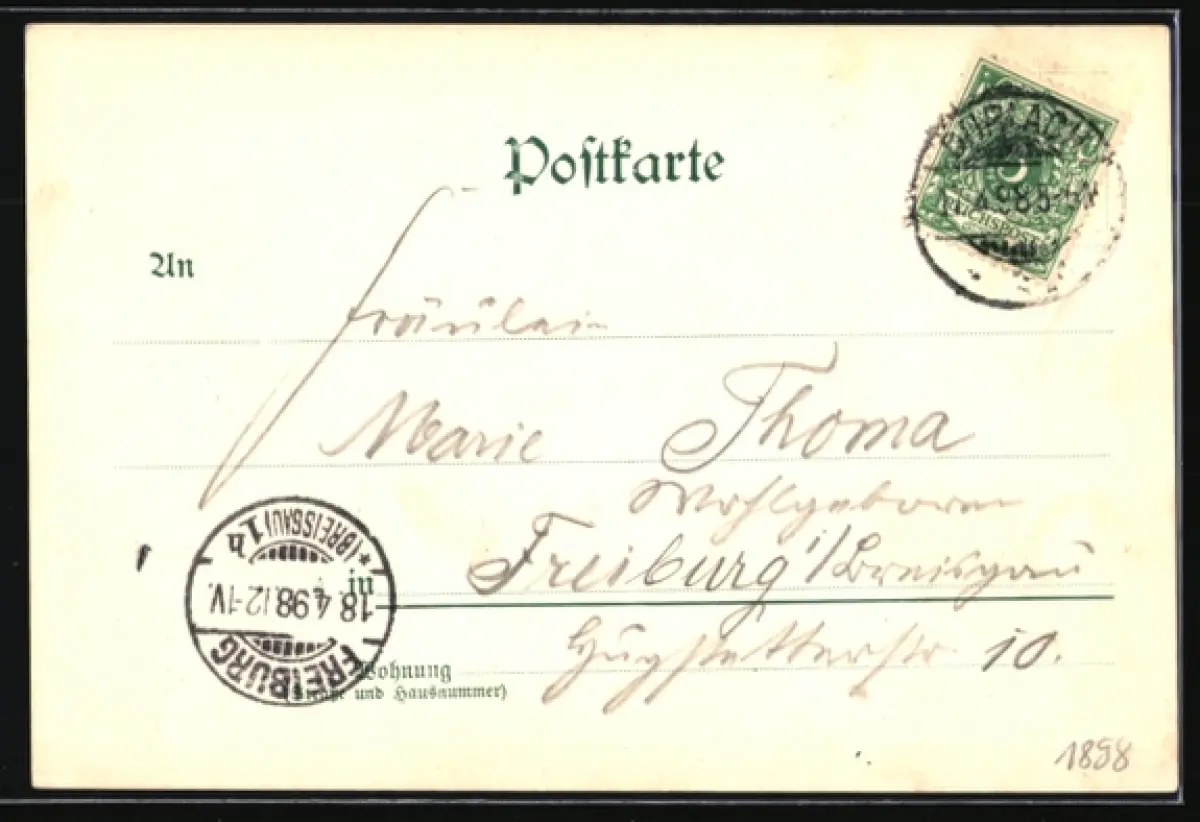 Postkarte
REICHSPOST
4.98.5-
An
Fräulein
Marie Thoma
Wohlgeboren
Freiburg i/Breisgau
in
Hugstetterstr. 10.
Wohnung
(Straße und Hausnummer)
FREIBURG
18.4.98.12-1V.
*(BREISGAU)1h
1898